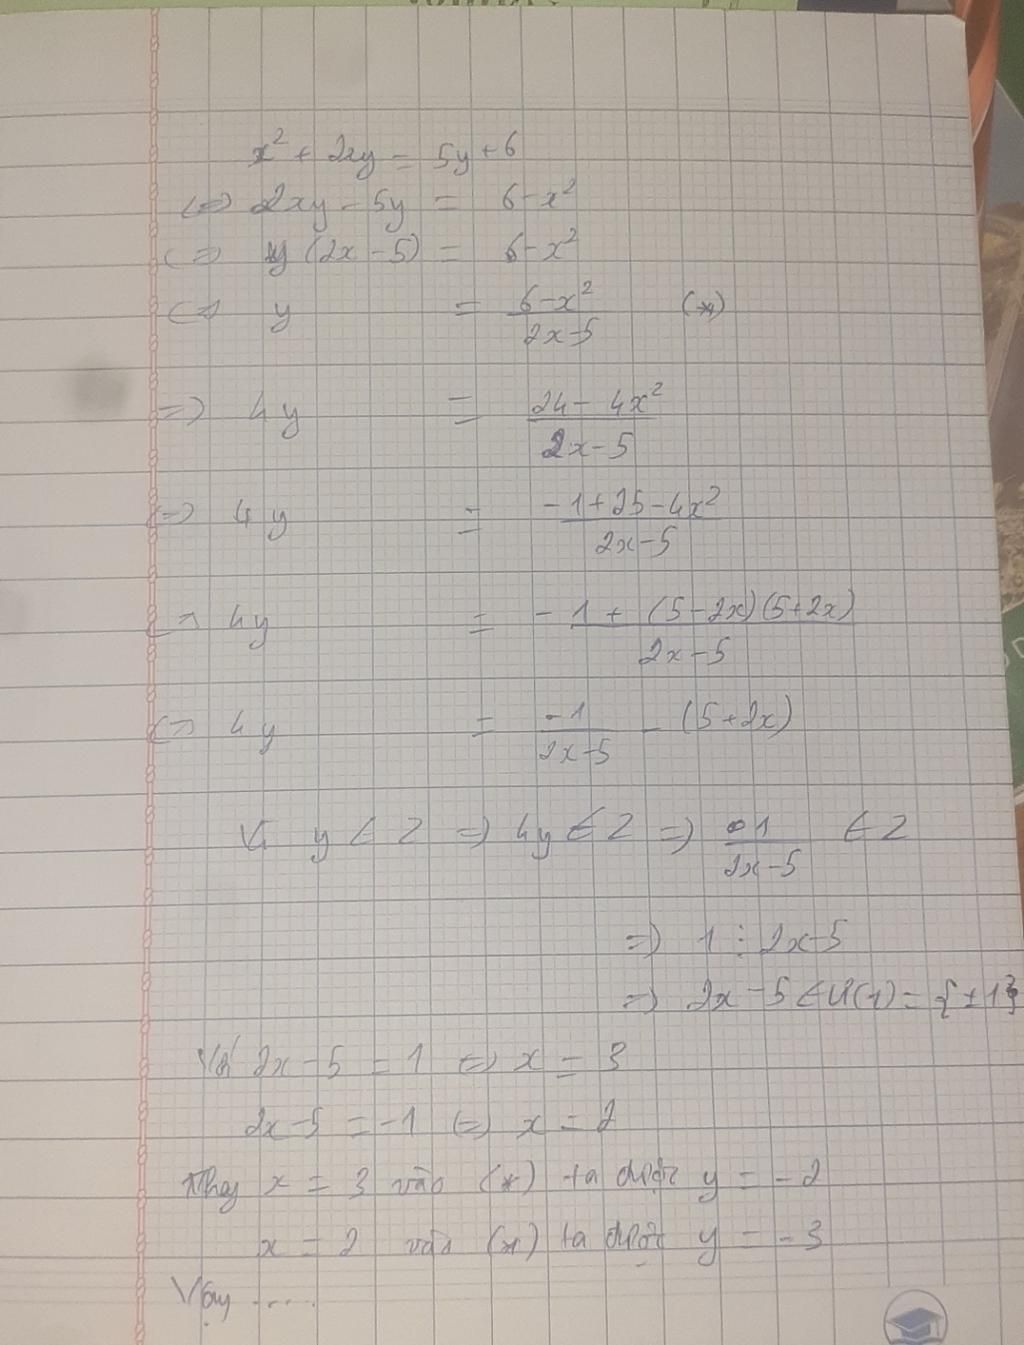 x² + 2xy = 5y + 6
⇔ 2xy - 5y = 6 - x²
⇔ y (2x - 5) = 6 - x²
⇔ y = (6 - x²)/(2x - 5) (*)
⇒ 4y = (24 - 4x²)/(2x - 5)
⇔ 4y = (-1 + 25 - 4x²)/(2x - 5)
⇔ 4y = (-1 + (5 - 2x)(5 + 2x))/(2x - 5)
⇔ 4y = -1/(2x - 5) - (5 + 2x)
Vì y ∈ Z ⇒ 4y ∈ Z ⇒ -1/(2x - 5) ∈ Z
⇒ 1 ⋮ 2x - 5
⇒ 2x - 5 ∈ Ư(1) = {±1}
Với 2x - 5 = 1 ⇔ x = 3
2x - 5 = -1 ⇔ x = 2
Thay x = 3 vào (*) ta được y = -2
x = 2 vào (*) ta được y = -3
Vậy .....